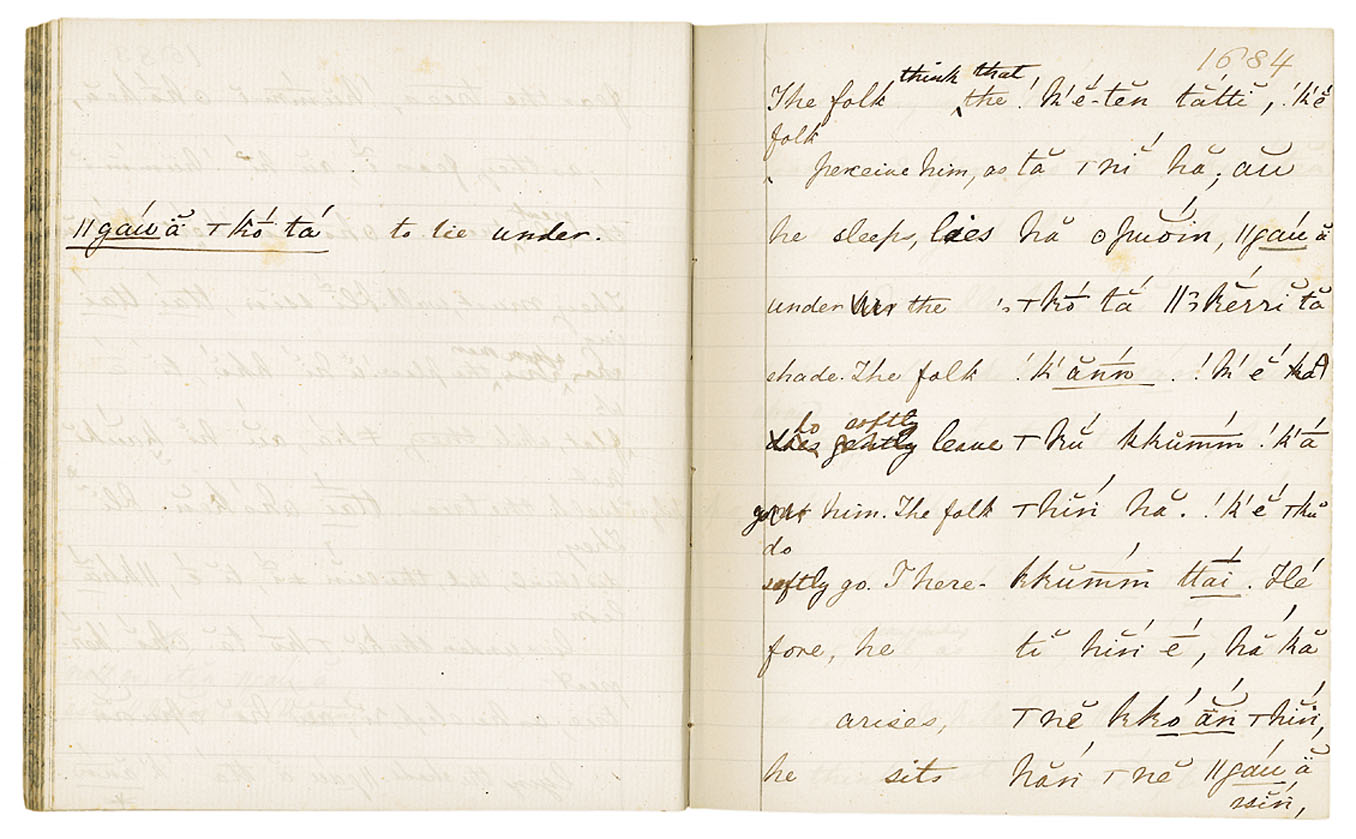 ǁgáu ă ⊤kó tá to lie under.
1684
The folk think that the !k'ĕ-tĕn tātti, !k'ĕ
folk
perceive him, as tā ⊤nī hă; aū
he sleeps, lies hă ʘpuóin, ǁgáu ă
under the ⊤kó tá ǁkérri tă
shade. The folk !k'ánn. !k'é
do softly leave ⊤kŭ kkumm !k'á
him. The folk ⊤hiń hă. !k'é ⊤kŭ
do
softly go. There- kkumm ttai. Hé
fore, he ti hiń é, há kă
arises, ⊤nĕ kkóăń ⊤hiń,
he sits háń ⊤nĕ ǁgáu ă
ssiń,